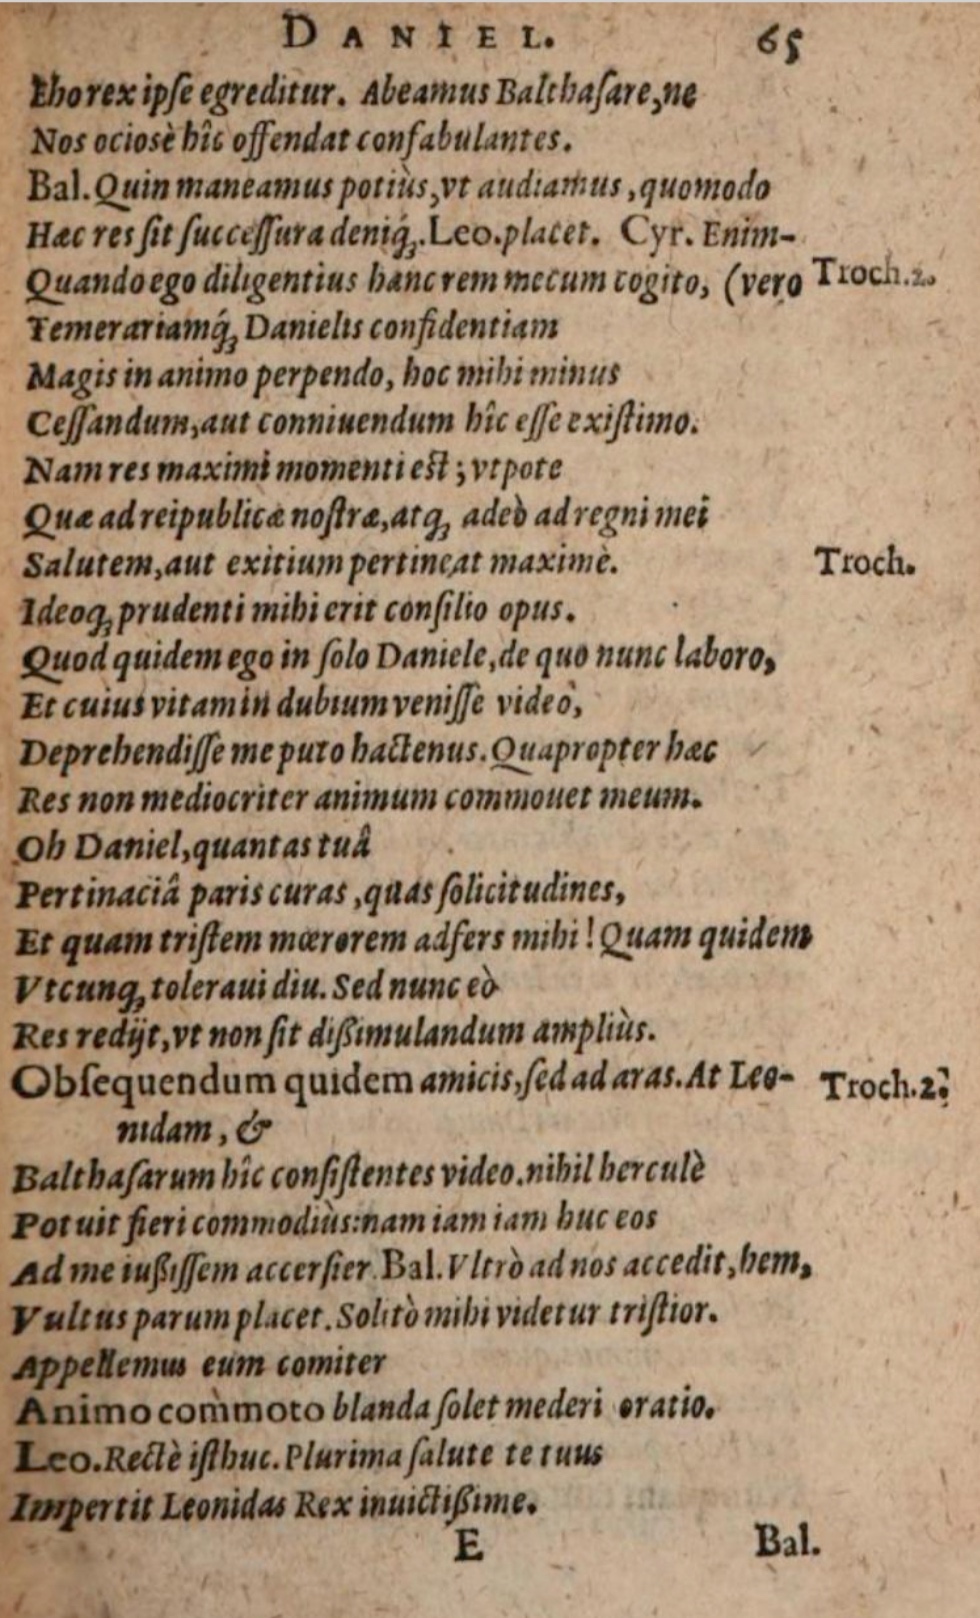 DANIEL. 65
Eho rex ipſe egreditur. Abeamus Balthaſare, ne
Nos ociosè hîc offendat confabulantes.
Bal. Quin maneamus potiùs, vt audiamus, quomodo
Hæc res ſit ſucceſſura deniq́ꝫ. Leo. placet. Cyr. Enim-
Quando ego diligentius hanc rem mecum cogito, (vero Troch.2.
Temerariamq́ꝫ Danielis confidentiam
Magis in animo perpendo, hoc mihi minus
Ceſſandum, aut conniuendum hîc eſſe exiſtimo.
Nam res maximi momenti est; vt pote
Quæ ad reipublicæ noſtræ, atqꝫ adeò ad regni mei
Salutem, aut exitium pertineat maximè. Troch.
Ideoqꝫ prudenti mihi erit conſilio opus.
Quod quidem ego in ſolo Daniele, de quo nunc laboro,
Et cuius vitam in dubium veniſſe videò,
Deprehendiſſe me puto hactenus. Quapropter hæc
Res non mediocriter animum commouet meum.
Oh Daniel, quantas tuâ
Pertinaciâ paris curas, quas ſolicitudines,
Et quam triſtem mœrorem adfers mihi! Quam quidem
Vtcunqꝫ toleraui diu. Sed nunc eò
Res redijt, vt non ſit dißimulandum ampliùs.
Obſequendum quidem amicis, ſed ad aras. At Leo- Troch.2.
nidam, &
Balthaſarum hîc conſiſtentes video. nihil herculè
Potuit fieri commodiùs: nam iam iam huc eos
Ad me iußiſſem accerſier. Bal. Vltrò ad nos accedit, hem,
Vultus parum placet. Solitò mihi videtur triſtior.
Appellemus eum comiter
Animo com̀moto blanda ſolet mederi oratio.
Leo. Rectè iſthuc. Plurima ſalute te tuus
Impertit Leonidas Rex inuictißime.
E Bal.